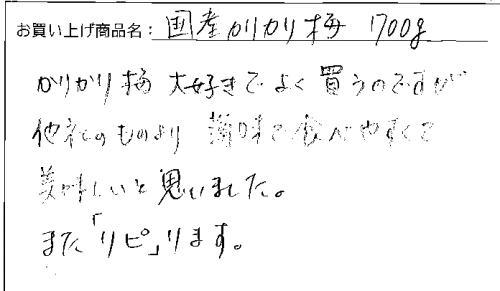 お買い上げ商品名: 国産カリカリ梅 1700g
かりかり梅 大好きでよく買うのですが
他社のものより 薄味で食べやすくて
美味しいと思いました。
また「リピ」ります。